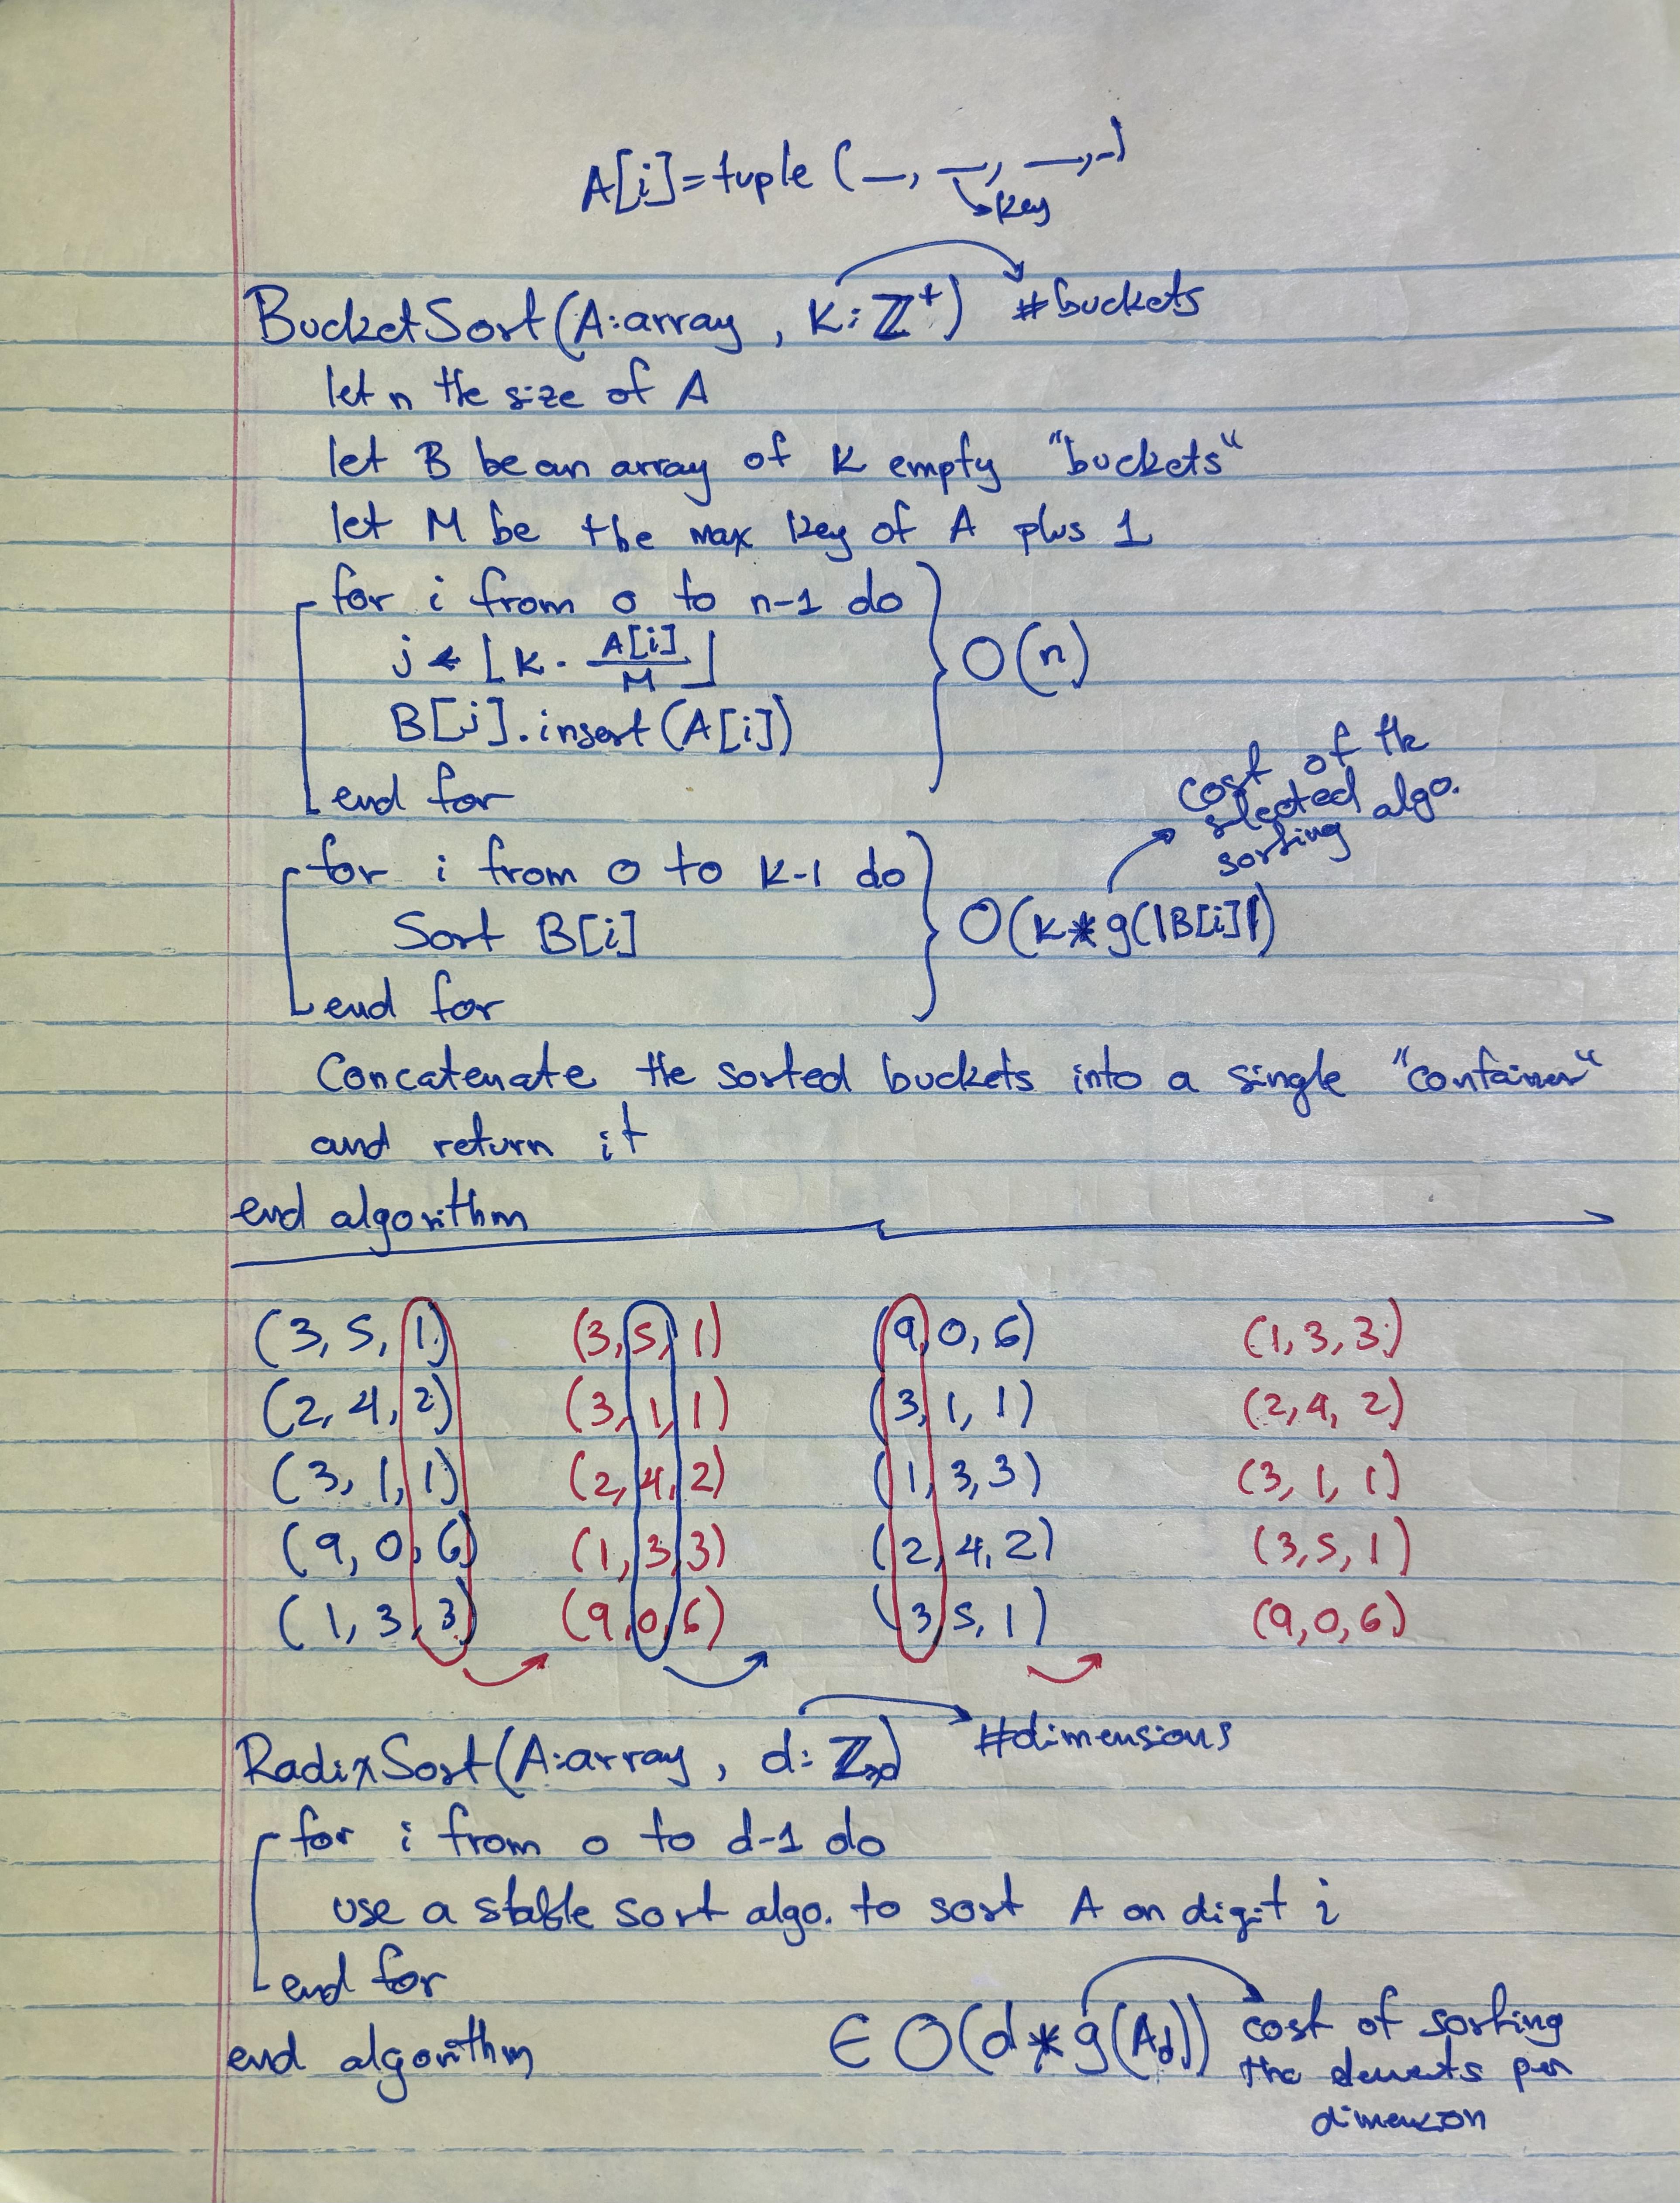 A[i]=tuple (_, _, _,-)
key
BucketSort(A:array, K:ℤ⁺) #buckets
let n the size of A
let B be an array of K empty "buckets"
let M be the max key of A plus 1
for i from 0 to n-1 do
j ← ⌊K · A[i]/M⌋ O(n)
B[j].insert(A[i])
end for
cost of the
selected algo.
sorting
for i from 0 to K-1 do
Sort B[i] O(K*g(|B[i]|)
end for
Concatenate the sorted buckets into a single "container"
and return it
end algorithm
(3, 5, 1) (3, 5, 1) (9, 0, 6) (1, 3, 3)
(2, 4, 2) (3, 1, 1) (3, 1, 1) (2, 4, 2)
(3, 1, 1) (2, 4, 2) (1, 3, 3) (3, 1, 1)
(9, 0, 6) (1, 3, 3) (2, 4, 2) (3, 5, 1)
(1, 3, 3) (9, 0, 6) (3, 5, 1) (9, 0, 6)
RadixSort(A:array, d: ℤ) #dimensions
for i from 0 to d-1 do
use a stable sort algo. to sort A on digit i
end for
end algorithm ∈ O(d*g(Ad)) cost of sorting
the elements per
dimension